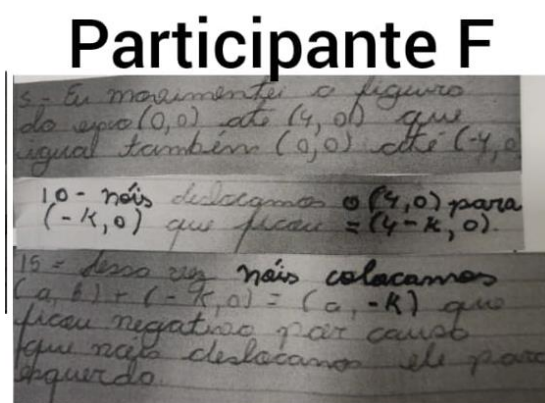 Participante F
5 - Eu movimentei a figura
do eixo (0,0) até (4,0) que
igual também (0,0) até (-4,0
10 - nóis deslocamos o (4,0) para
(-k,0) que ficou = (4-k,0).
15 = dessa vez nóis colocamos
(a,b) + (-k,0) = (a,-k) que
ficou negativo por causo
que nóis deslocamos ele para
esquerdo.